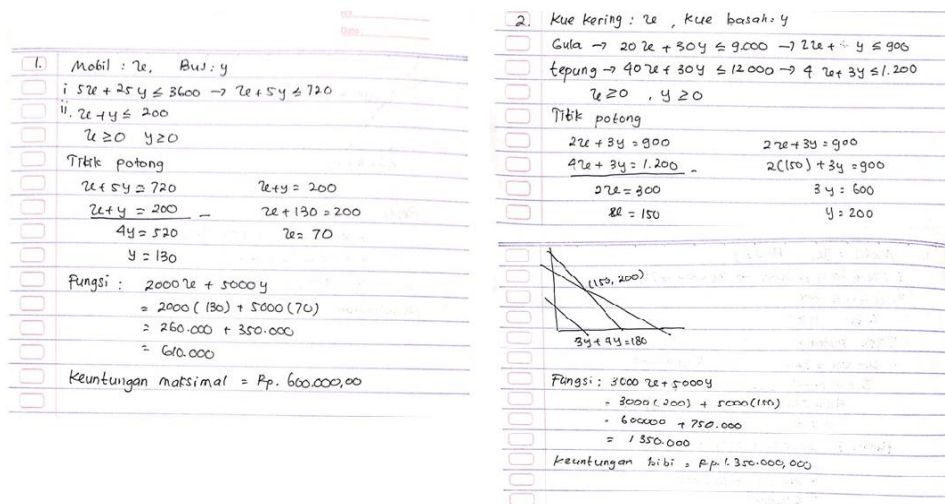 1. Mobil : x, Bus : y
i 5x + 25y ≤ 3600 → x + 5y ≤ 720
ii. x + y ≤ 200
x ≥ 0 y ≥ 0
Titik potong
x + 5y = 720 x + y = 200
x + y = 200 - x + 130 = 200
4y = 520 x = 70
y = 130
Fungsi : 2000x + 5000y
= 2000 (130) + 5000 (70)
= 260.000 + 350.000
= 610.000
Keuntungan maksimal = Rp. 600.000,00
2. Kue kering : x , Kue basah : y
Gula → 20x + 30y ≤ 9.000 → 2x + y ≤ 900
tepung → 40x + 30y ≤ 12000 → 4x + 3y ≤ 1.200
x ≥ 0 , y ≥ 0
Titik potong
2x + 3y = 900 2x + 3y = 900
4x + 3y = 1.200 - 2(150) + 3y = 900
2x = 300 3y = 600
x = 150 y = 200
(150, 200)
3y + 4y = 180
Fungsi : 3000x + 5000y
= 3000 (200) + 5000 (150)
= 600000 + 750.000
= 1 350.000
Keuntungan bibi = Rp. 1.350.000,000